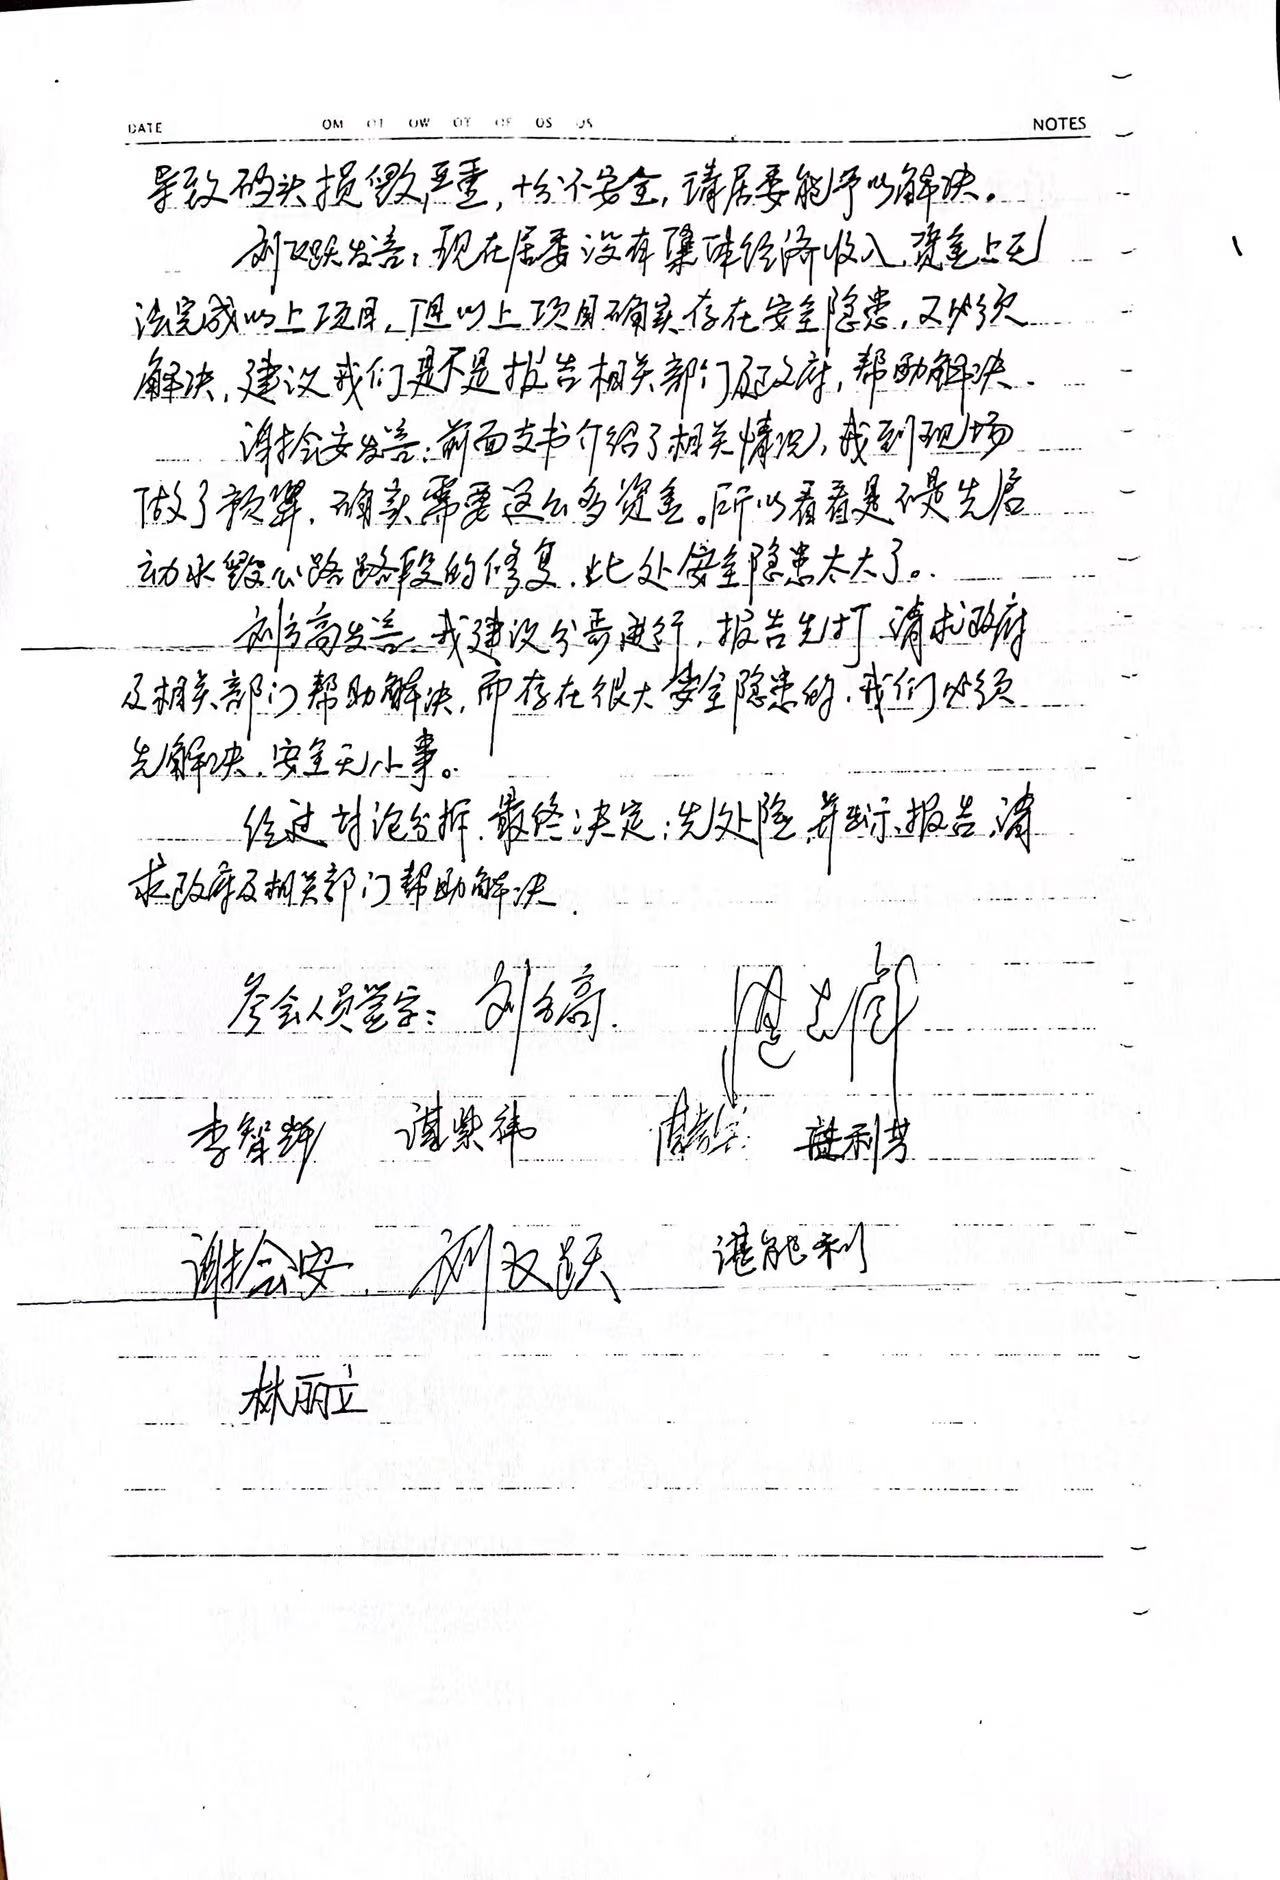 DATE NOTES
导致码头损毁严重，十分不安全，请居委能予以解决。
刘双跃发言：现在居委没有集体经济收入，资金上无
法完成以上项目，但以上项目确实存在安全隐患，又必须
解决，建议我们是不是报告相关部门及政府，帮助解决．
谢拾安发言：前面支书介绍了相关情况，我到现场
做了预算，确实需要这么多资金。所以看看是不是先启
动水毁公路路段的修复，此处安全隐患太大了。
刘方高发言：我建议分步进行，报告先打，请求政府
及相关部门帮助解决，而存在很大安全隐患的，我们必须
先解决，安全无小事。
经过讨论分析，最终决定：先处险，并出示报告，请
求政府及相关部门帮助解决．
参会人员签字：刘方高．
李智辉 谌紫祎 利芳
谢拾安． 刘双跃 谌能利
林丽立